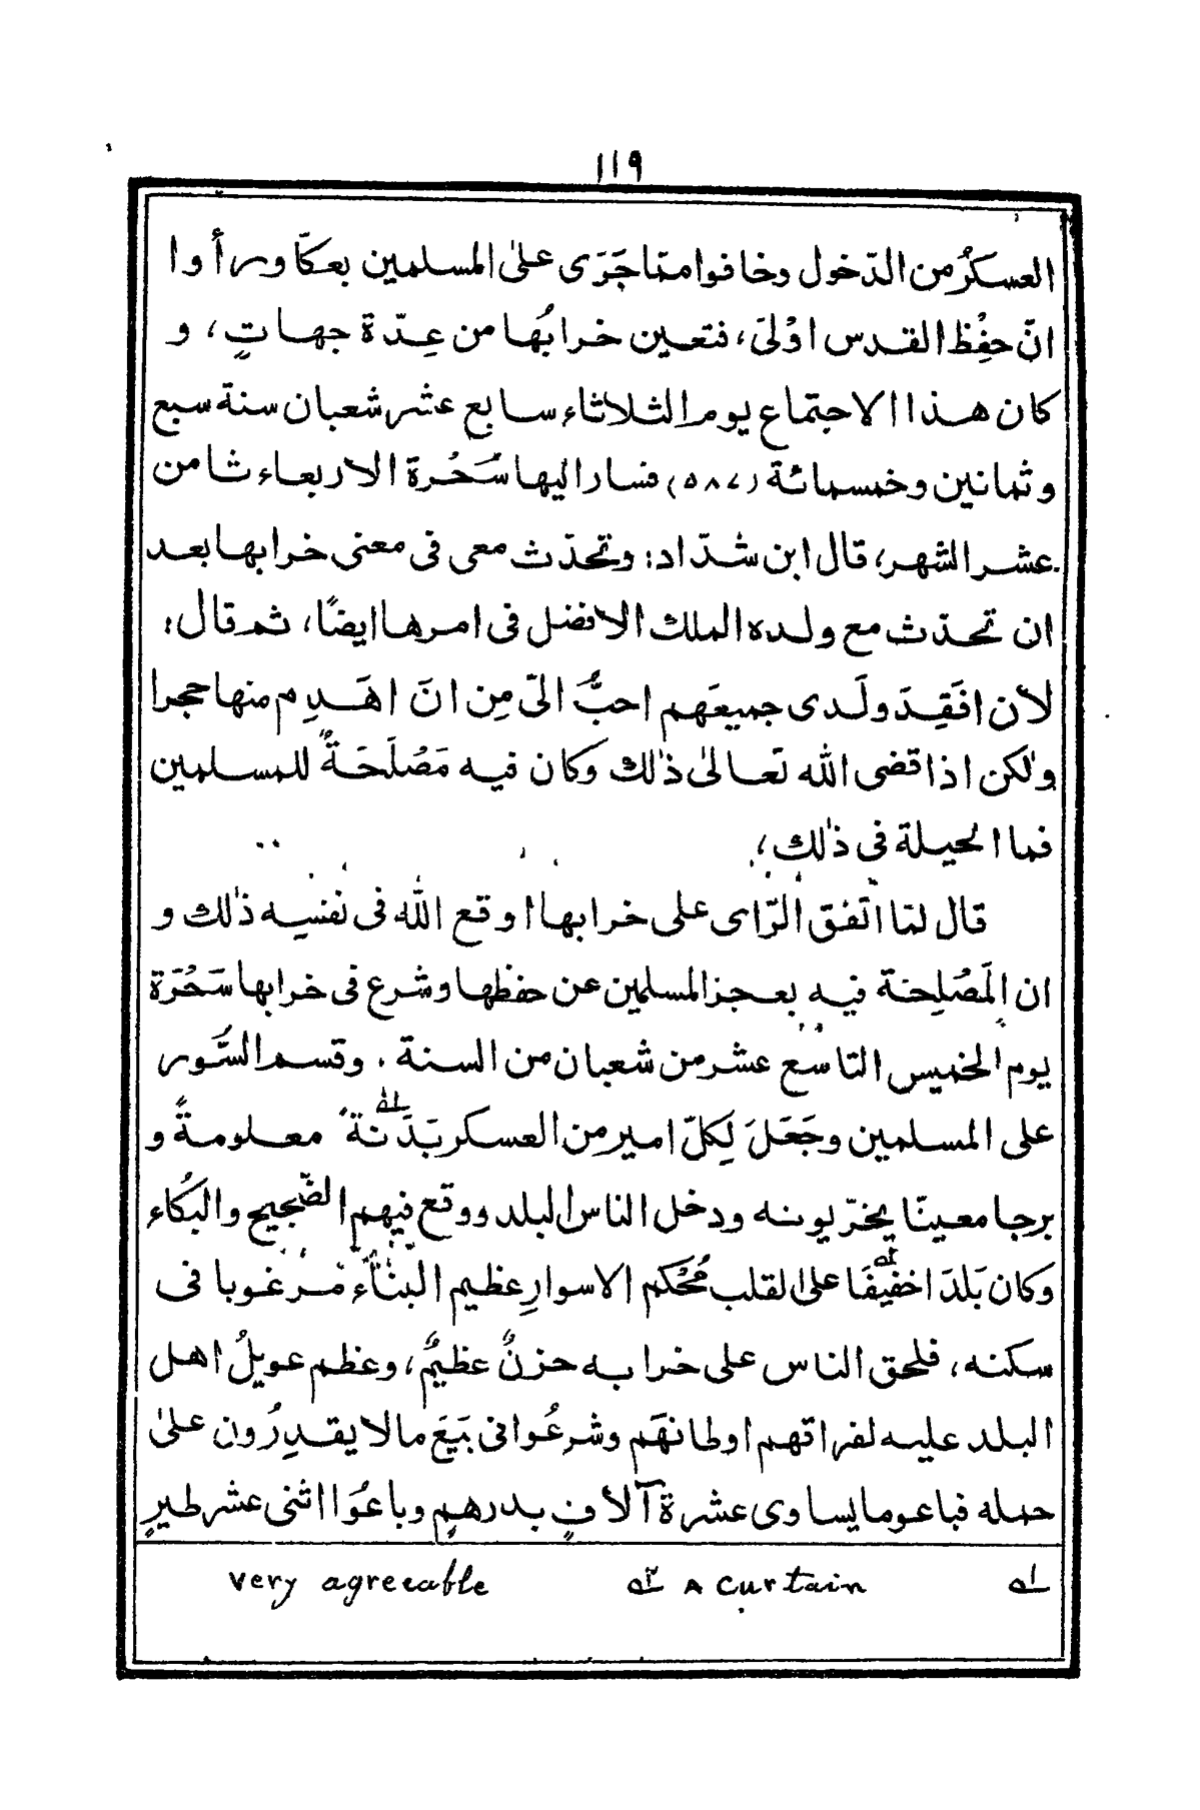 ١١٩
العسكرُ من الدّخول وخافوا ممّا جَرَى علىٰ المسلمين بعكّا ورأوا
انّ حفِْظ القدس اوْلىَ، فتعين خرابُها من عِدّة جهاتٍ، و
كان هذا الاجتماع يوم الثلاثاء سابع عشر شعبان سنة سبع
وثمانين وخمسمائة (٥٨٧) فسار اليها سُحُرة الاربعاء ثامن
عشر الشهر، قال ابن شدّاد: وتحدّث معى فى معنى خرابها بعد
ان تحدّث مع ولده الملك الافضل فى امرها ايضًا، ثم قال:
لأن افَقِدَ ولَدى جميعَهم احبُّ الىّ مِن انَ اهَدِم منها حجرا
ولٰكن اذا قضى الله تعالىٰ ذٰلك وكان فيه مَصْلَحَةٌ للمسلمين
فما الحيلة فى ذٰلك،
قال لمّا اتّفق الرّاى على خرابها اوقع الله فى نفسِه ذٰلك و
ان المَصْلِحَة فيه بعجز المسلمين عن حفظها وشرع فى خرابها سَحُرَة
يوم الخميس التاسع عشر من شعبان من السنة. وقسم السّور
على المسلمين وجَعَلَ لِكلّ امير من العسكر بَدَنَة له معلومةً و
برجا معينّا يخرّبونه ودخل الناس البلد ووقع فيهم الضّجيج والبكُاء
وكان بَلدَا خفيفًا له على القلب مُحْكم الاسوارِ عظيم البنّاء مرغوبا فى
سكنه، فلحق الناس على خرابه حزنٌ عظيمٌ، وعظم عويلُ اهل
البلد عليه لفراقهم اوطانهَم وشرعُوا فى بَيَعَ مالا يقدِرُون علىٰ
حمله فباعوا ما يساوى عشرة آلافٍ بدرهمٍ وباعُوَا اثنى عشر طيرٍ
له A curtain ٢ه very agreeable